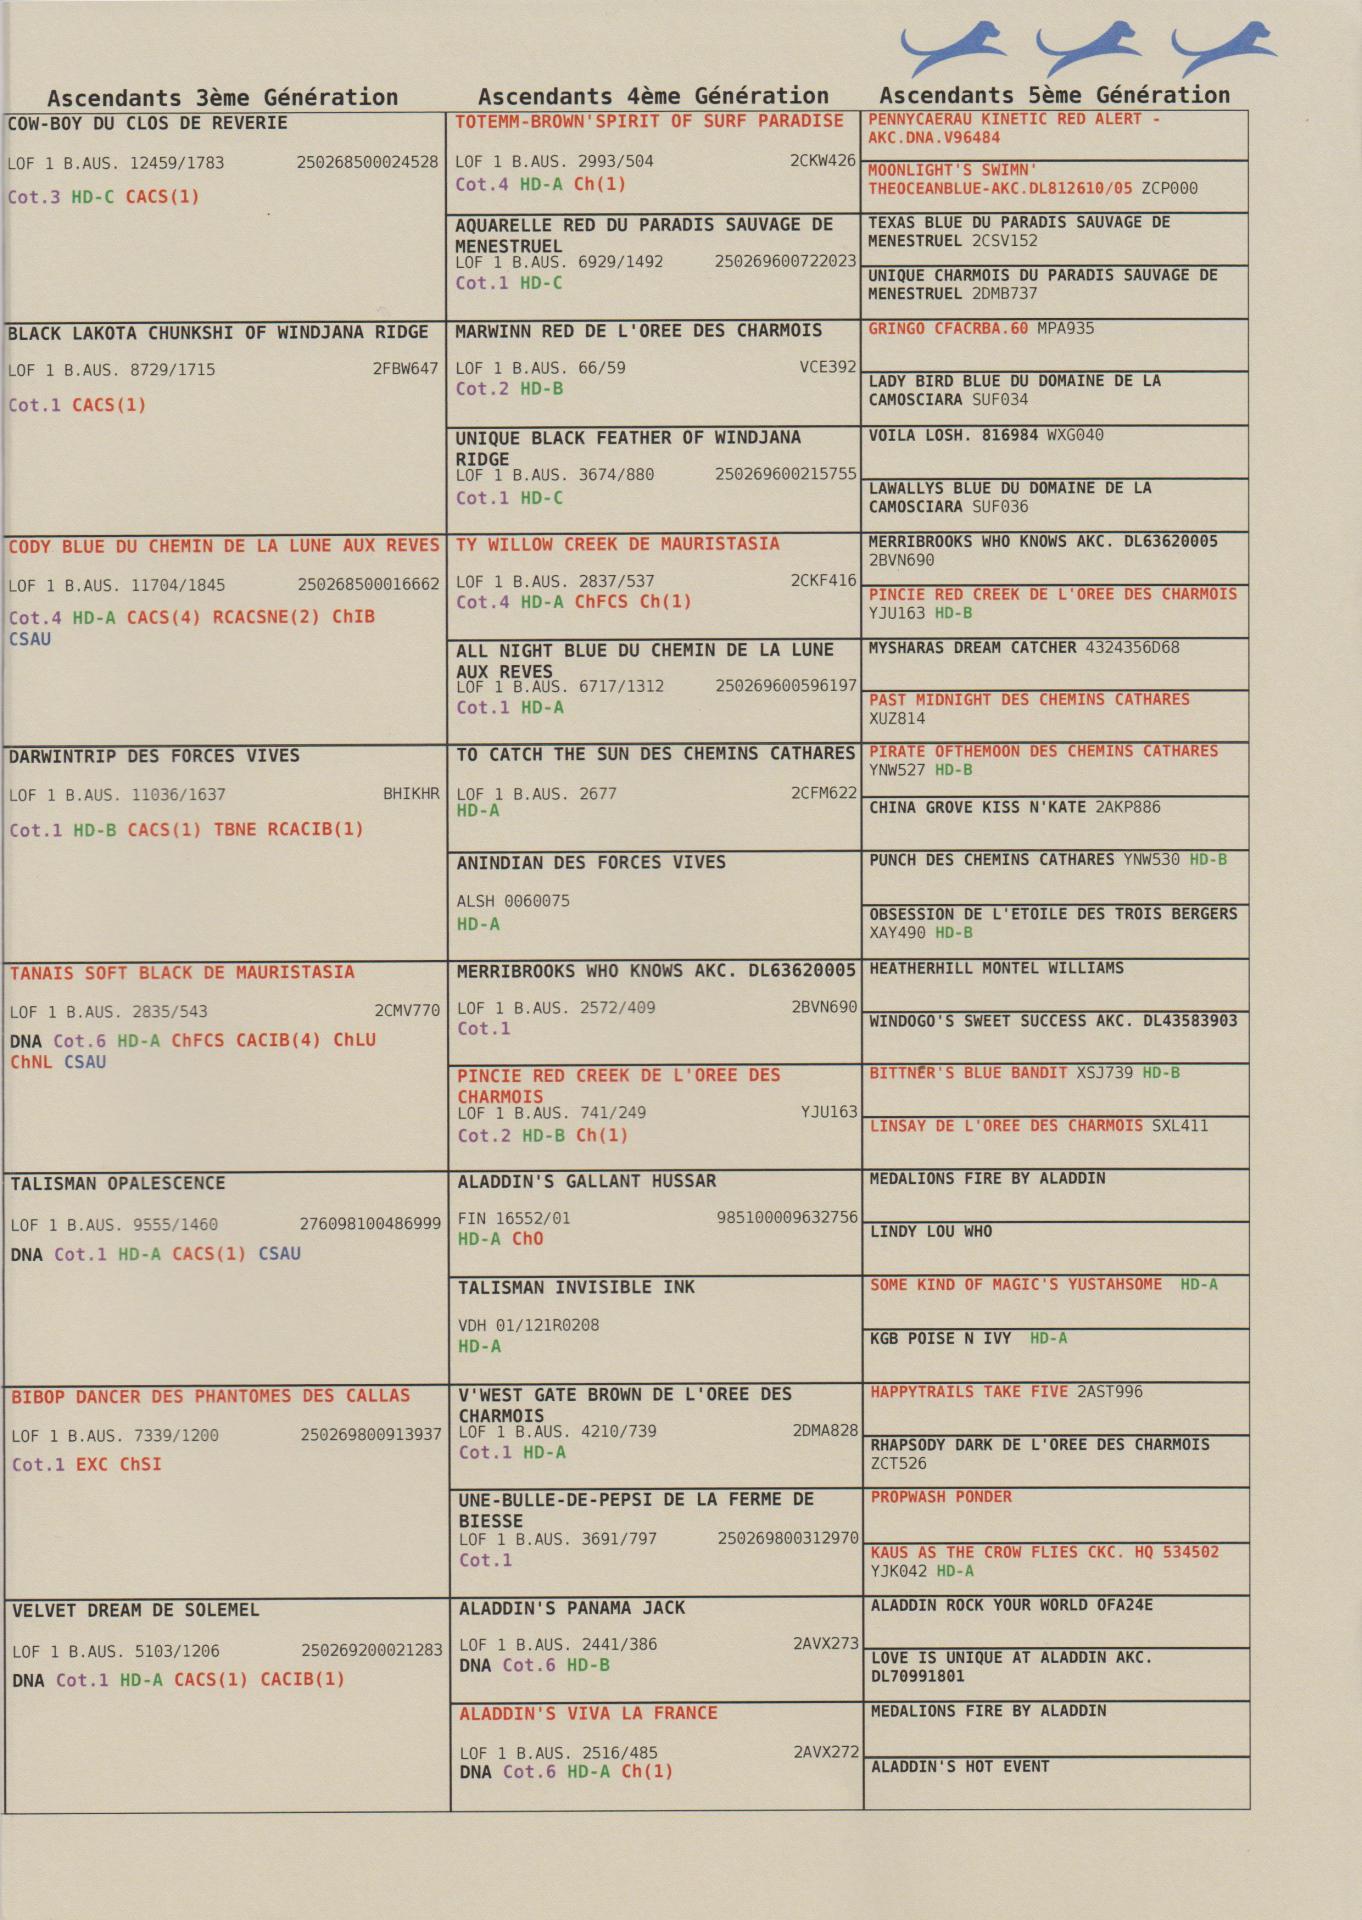 Ascendants 3ème Génération
COW-BOY DU CLOS DE REVERIE
LOF 1 B.AUS. 12459/1783 250268500024528
Cot.3 HD-C CACS(1)
BLACK LAKOTA CHUNKSHI OF WINDJANA RIDGE
LOF 1 B.AUS. 8729/1715 2FBW647
Cot.1 CACS(1)
CODY BLUE DU CHEMIN DE LA LUNE AUX REVES
LOF 1 B.AUS. 11704/1845 250268500016662
Cot.4 HD-A CACS(4) RCACSNE(2) ChIB
CSAU
DARWINTRIP DES FORCES VIVES
LOF 1 B.AUS. 11036/1637 BHIKHR
Cot.1 HD-B CACS(1) TBNE RCACIB(1)
TANAIS SOFT BLACK DE MAURISTASIA
LOF 1 B.AUS. 2835/543 2CMV770
DNA Cot.6 HD-A ChFCS CACIB(4) ChLU
ChNL CSAU
TALISMAN OPALESCENCE
LOF 1 B.AUS. 9555/1460 276098100486999
DNA Cot.1 HD-A CACS(1) CSAU
BIBOP DANCER DES PHANTOMES DES CALLAS
LOF 1 B.AUS. 7339/1200 250269800913937
Cot.1 EXC ChSI
VELVET DREAM DE SOLEMEL
LOF 1 B.AUS. 5103/1206 250269200021283
DNA Cot.1 HD-A CACS(1) CACIB(1)
Ascendants 4ème Génération
TOTEMM-BROWN'SPIRIT OF SURF PARADISE
LOF 1 B.AUS. 2993/504 2CKW426
Cot.4 HD-A Ch(1)
AQUARELLE RED DU PARADIS SAUVAGE DE
MENESTRUEL
LOF 1 B.AUS. 6929/1492 250269600722023
Cot.1 HD-C
MARWINN RED DE L'OREE DES CHARMOIS
LOF 1 B.AUS. 66/59 VCE392
Cot.2 HD-B
UNIQUE BLACK FEATHER OF WINDJANA
RIDGE
LOF 1 B.AUS. 3674/880 250269600215755
Cot.1 HD-C
TY WILLOW CREEK DE MAURISTASIA
LOF 1 B.AUS. 2837/537 2CKF416
Cot.4 HD-A ChFCS Ch(1)
ALL NIGHT BLUE DU CHEMIN DE LA LUNE
AUX REVES
LOF 1 B.AUS. 6717/1312 250269600596197
Cot.1 HD-A
TO CATCH THE SUN DES CHEMINS CATHARES
LOF 1 B.AUS. 2677 2CFM622
HD-A
ANINDIAN DES FORCES VIVES
ALSH 0060075
HD-A
MERRIBROOKS WHO KNOWS AKC. DL63620005
LOF 1 B.AUS. 2572/409 2BVN690
Cot.1
PINCIE RED CREEK DE L'OREE DES
CHARMOIS
LOF 1 B.AUS. 741/249 YJU163
Cot.2 HD-B Ch(1)
ALADDIN'S GALLANT HUSSAR
FIN 16552/01 985100009632756
HD-A ChO
TALISMAN INVISIBLE INK
VDH 01/121R0208
HD-A
V'WEST GATE BROWN DE L'OREE DES
CHARMOIS
LOF 1 B.AUS. 4210/739 2DMA828
Cot.1 HD-A
UNE-BULLE-DE-PEPSI DE LA FERME DE
BIESSE
LOF 1 B.AUS. 3691/797 250269800312970
Cot.1
ALADDIN'S PANAMA JACK
LOF 1 B.AUS. 2441/386 2AVX273
DNA Cot.6 HD-B
ALADDIN'S VIVA LA FRANCE
LOF 1 B.AUS. 2516/485 2AVX272
DNA Cot.6 HD-A Ch(1)
Ascendants 5ème Génération
PENNYCAERAU KINETIC RED ALERT -
AKC.DNA.V96484
MOONLIGHT'S SWIMN'
THEOCEANBLUE-AKC.DL812610/05 ZCP000
TEXAS BLUE DU PARADIS SAUVAGE DE
MENESTRUEL 2CSV152
UNIQUE CHARMOIS DU PARADIS SAUVAGE DE
MENESTRUEL 2DMB737
GRINGO CFACRBA.60 MPA935
LADY BIRD BLUE DU DOMAINE DE LA
CAMOSCIARA SUF034
VOILA LOSH. 816984 WXG040
LAWALLYS BLUE DU DOMAINE DE LA
CAMOSCIARA SUF036
MERRIBROOKS WHO KNOWS AKC. DL63620005
2BVN690
PINCIE RED CREEK DE L'OREE DES CHARMOIS
YJU163 HD-B
MYSHARAS DREAM CATCHER 4324356D68
PAST MIDNIGHT DES CHEMINS CATHARES
XUZ814
PIRATE OFTHEMOON DES CHEMINS CATHARES
YNW527 HD-B
CHINA GROVE KISS N'KATE 2AKP886
PUNCH DES CHEMINS CATHARES YNW530 HD-B
OBSESSION DE L'ETOILE DES TROIS BERGERS
XAY490 HD-B
HEATHERHILL MONTEL WILLIAMS
WINDOGO'S SWEET SUCCESS AKC. DL43583903
BITTNER'S BLUE BANDIT XSJ739 HD-B
LINSAY DE L'OREE DES CHARMOIS SXL411
MEDALIONS FIRE BY ALADDIN
LINDY LOU WHO
SOME KIND OF MAGIC'S YUSTAHSOME HD-A
KGB POISE N IVY HD-A
HAPPYTRAILS TAKE FIVE 2AST996
RHAPSODY DARK DE L'OREE DES CHARMOIS
ZCT526
PROPWASH PONDER
KAUS AS THE CROW FLIES CKC. HQ 534502
YJK042 HD-A
ALADDIN ROCK YOUR WORLD OFA24E
LOVE IS UNIQUE AT ALADDIN AKC.
DL70991801
MEDALIONS FIRE BY ALADDIN
ALADDIN'S HOT EVENT